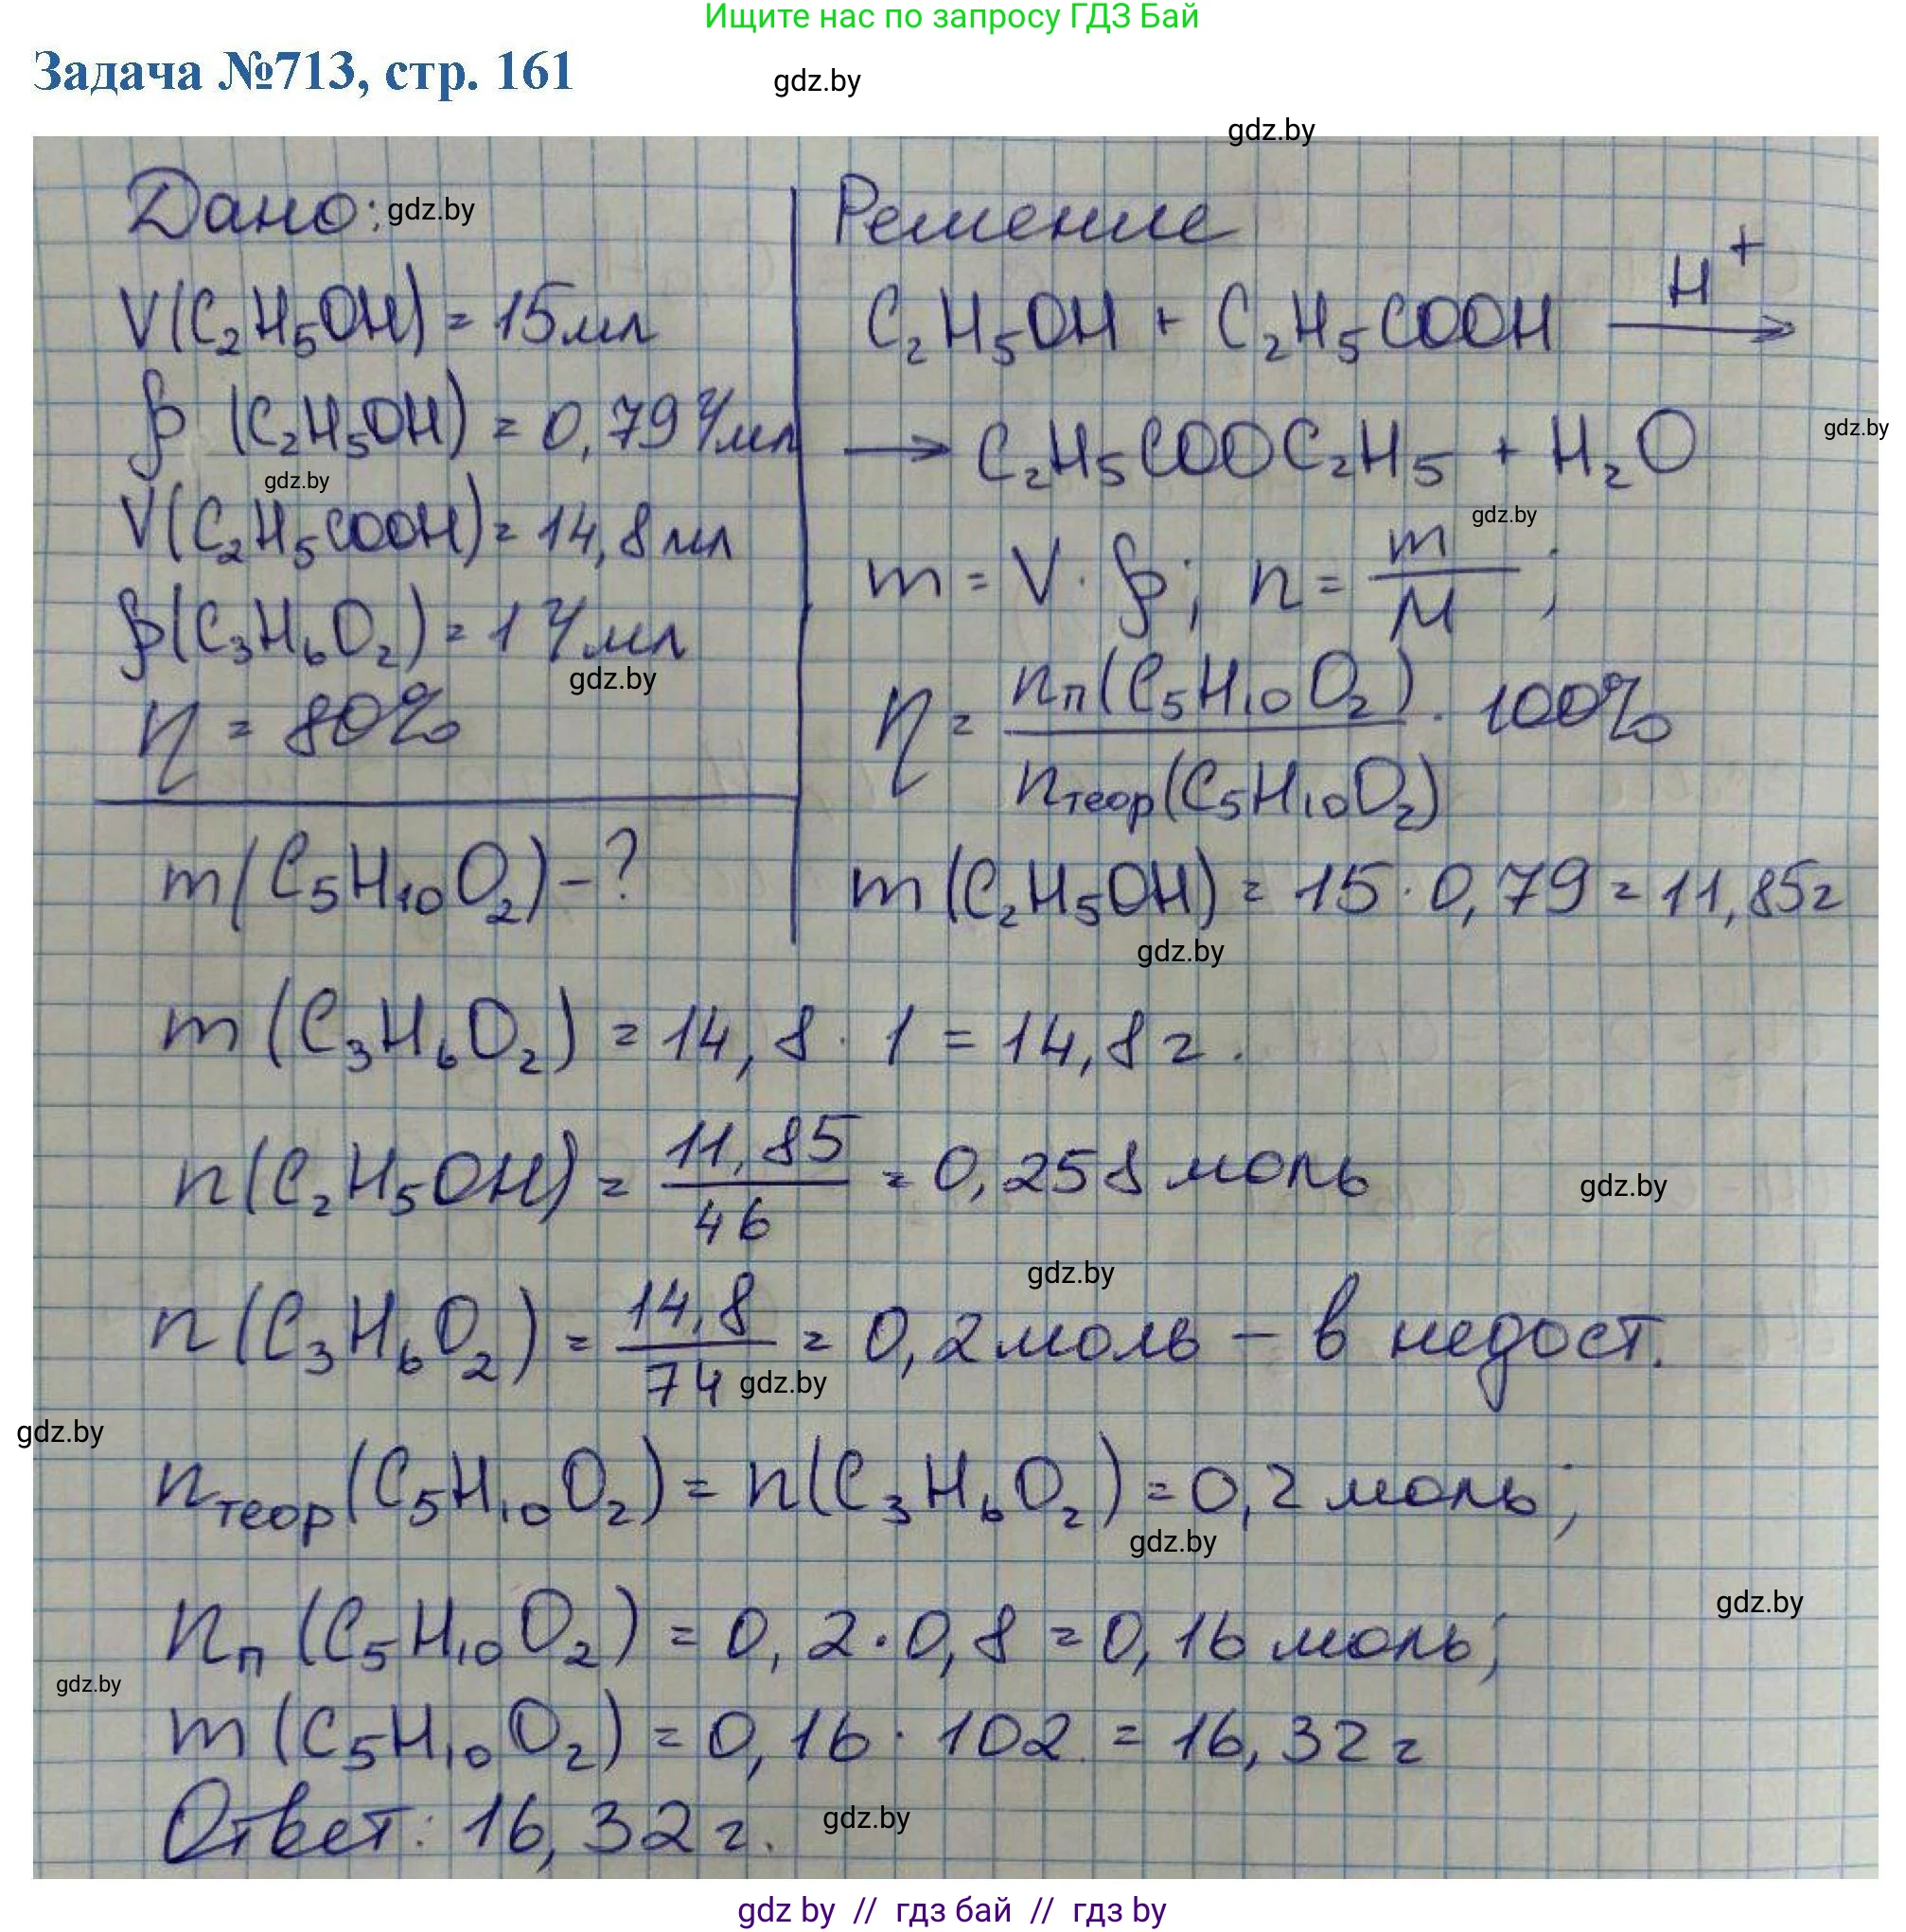 Ищите нас по запросу ГДЗ Бай
Задача №713, стр. 161
gdz.by
gdz.by
Дано: gdz.by
V(C₂H₅OH) = 15мл
ρ (C₂H₅OH) = 0,79 г/мл
gdz.by
V(C₂H₅COOH) = 14,8 мл
ρ(C₃H₆O₂) = 1 г/мл
gdz.by
η = 80%
m(C₅H₁₀O₂) - ?
Решение
C₂H₅OH + C₂H₅COOH —H⁺→
→ C₂H₅COOC₂H₅ + H₂O
gdz.by
gdz.by
m = V · ρ; n = m/M;
η = nп(C₅H₁₀O₂)/nтеор(C₅H₁₀O₂) · 100%
m (C₂H₅OH) = 15 · 0,79 = 11,85г
gdz.by
m (C₃H₆O₂) = 14,8 · 1 = 14,8 г.
n(C₂H₅OH) = 11,85/46 = 0,258 моль
gdz.by
gdz.by
n (C₃H₆O₂) = 14,8/74 = 0,2 моль – в недост.
gdz.by
gdz.by
nтеор(C₅H₁₀O₂) = n(C₃H₆O₂) = 0,2 моль;
gdz.by
gdz.by
nп (C₅H₁₀O₂) = 0,2 · 0,8 = 0,16 моль;
gdz.by
m (C₅H₁₀O₂) = 0,16 · 102 = 16,32 г
Ответ: 16,32 г. gdz.by
gdz by // гдз бай // гдз by